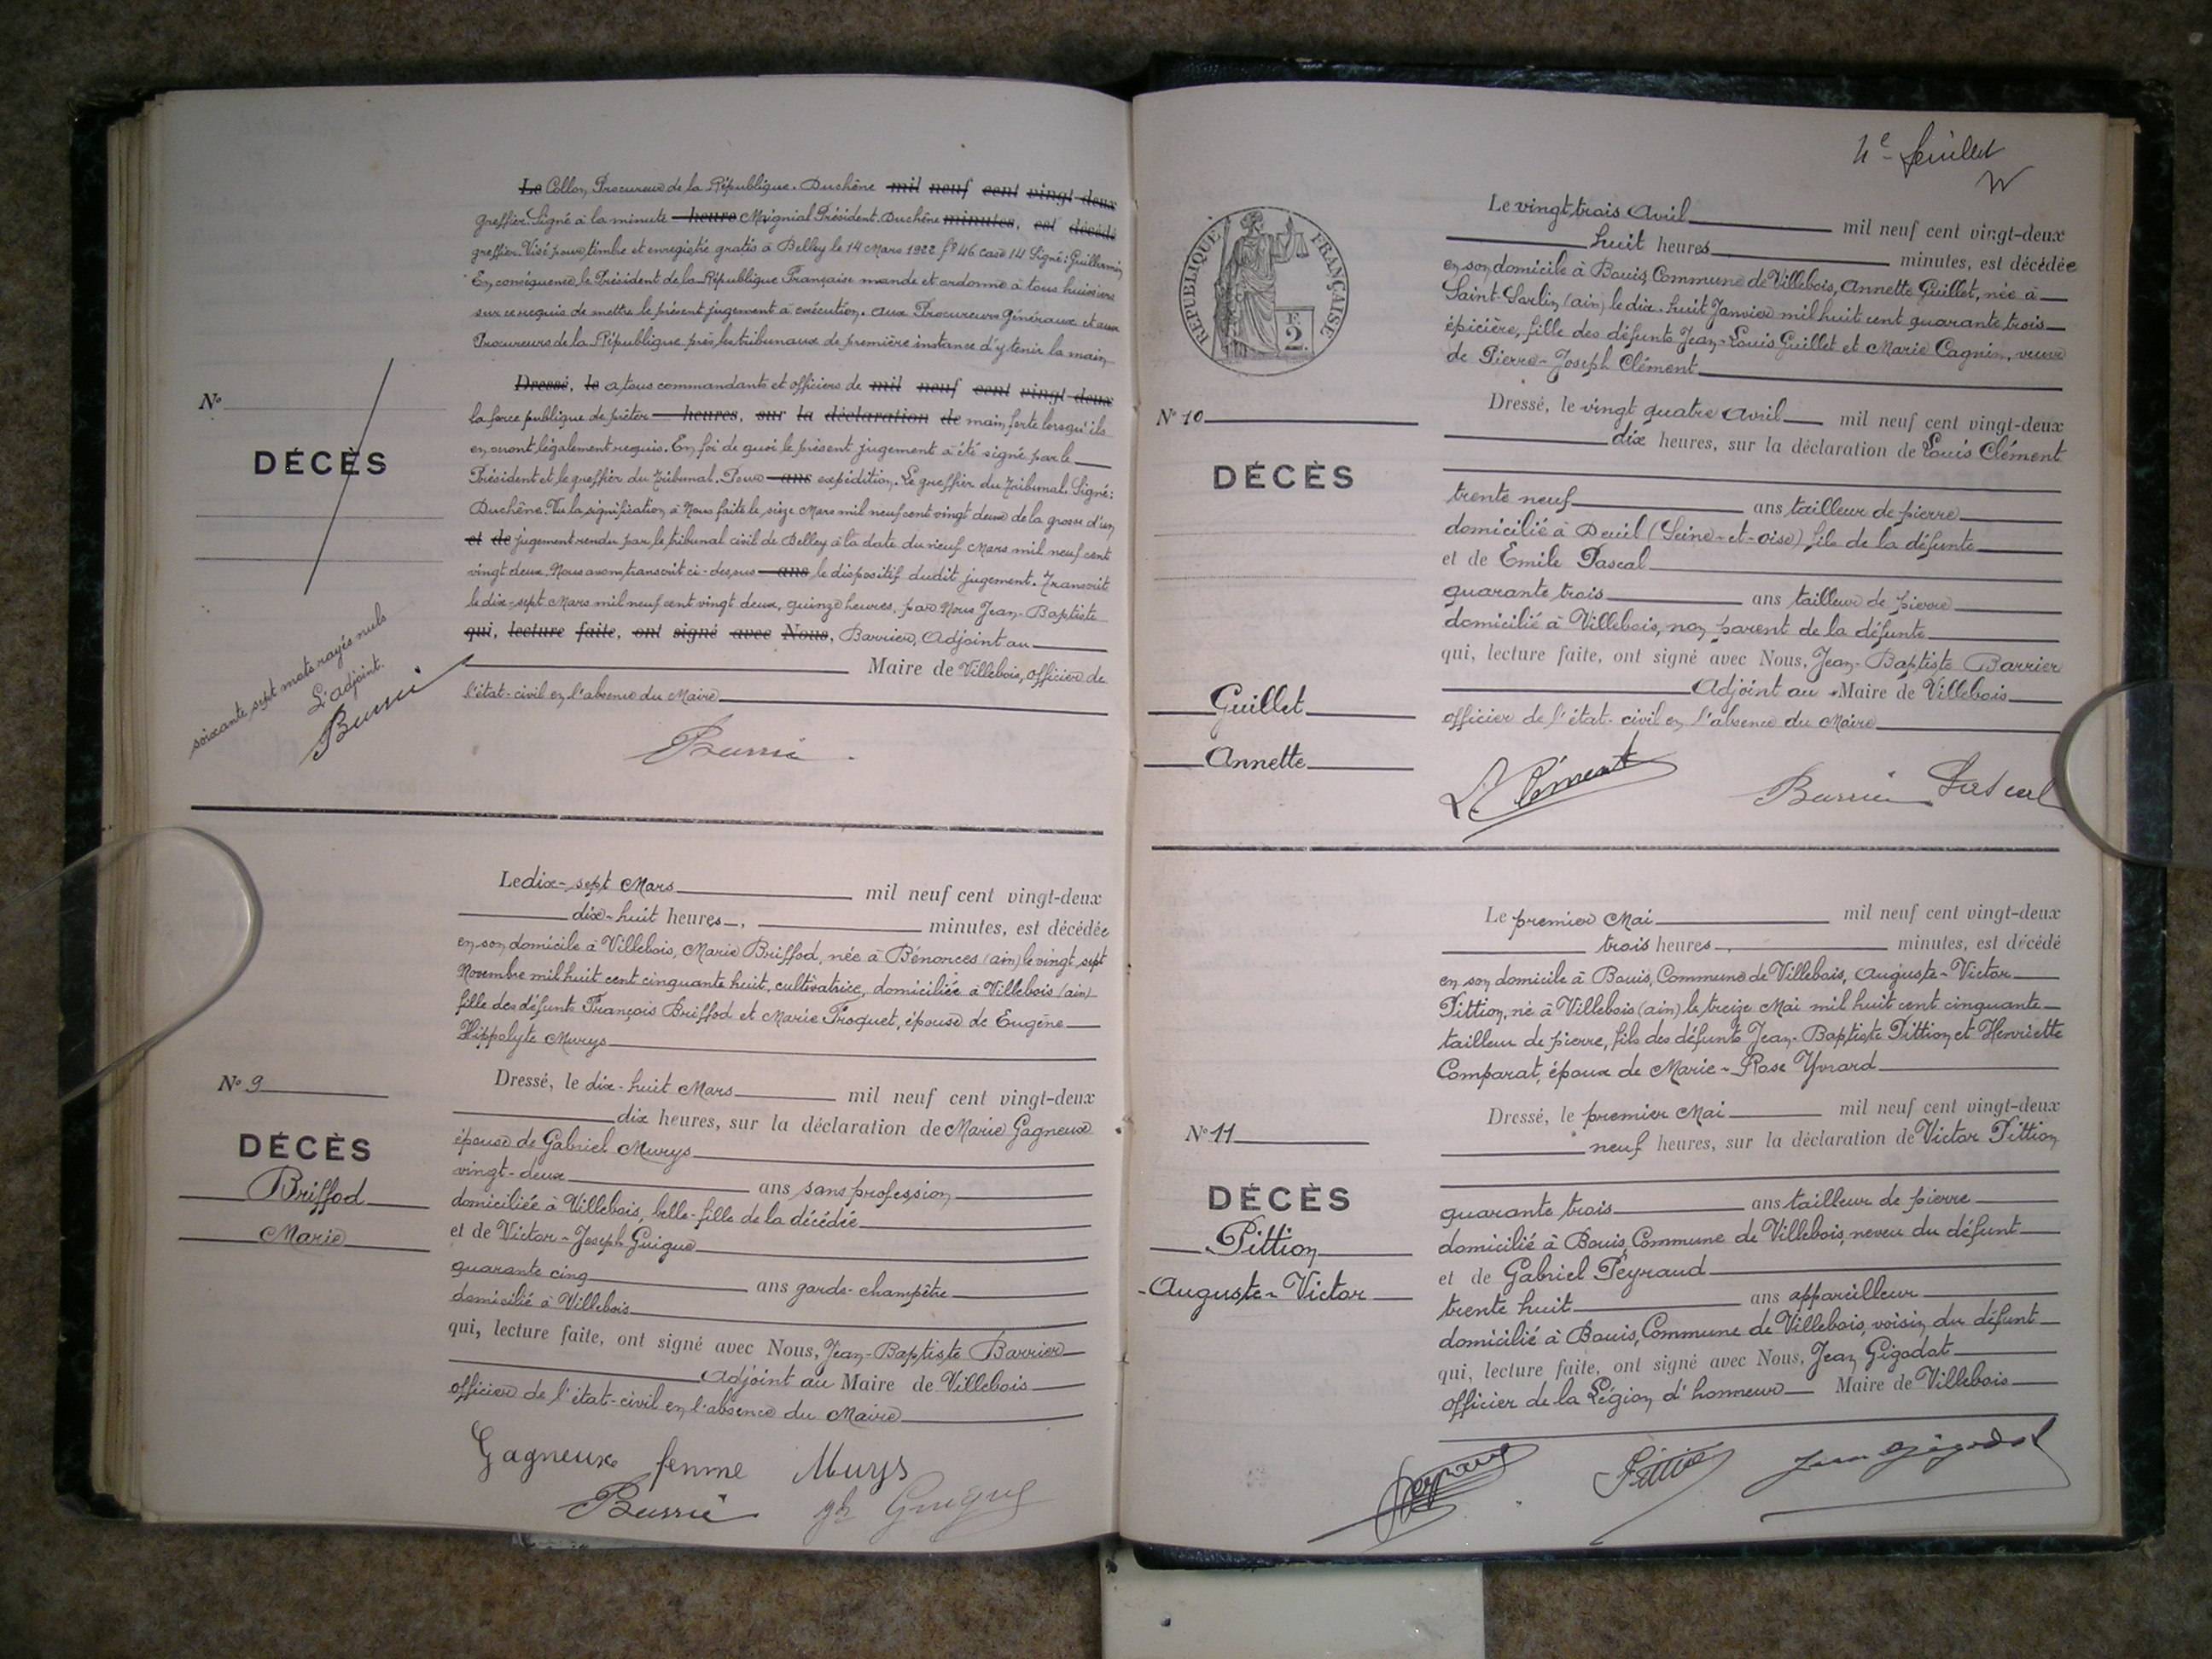 Le Collon, Procureur de la République. Duchêne mil neuf cent vingt-deux
greffier. Signé à la minute heure Mignial Président. Duchêne minutes, est décédé
greffier. Visé pour timbre et enregistré gratis à Belley le 14 Mars 1922 f° 46 case 14 Signé: Guillermin
En conséquence le Président de la République Française mande et ordonne à tous huissiers
sur ce requis de mettre le présent jugement à exécution. Aux Procureurs Généraux et aux
Procureurs de la République près les tribunaux de première instance d'y tenir la main,
Dressé, le a tous commandants et officiers de mil neuf cent vingt-deux
la force publique de prêter heures, sur la déclaration de main forte lorsqu'ils
en seront légalement requis. En foi de quoi le présent jugement a été signé par le
Président et le greffier du tribunal. Pour ans expédition. Le greffier du tribunal. Signé:
Duchêne. Vu la signification à Nous faite le seize Mars mil neuf cent vingt deux de la grosse d'un
et de jugement rendu par le tribunal civil de Belley à la date du neuf Mars mil neuf cent
vingt deux. Nous avons transcrit ci-dessus ans le dispositif dudit jugement. Transcrit
le dix-sept Mars mil neuf cent vingt deux, quinze heures, par Nous Jean-Baptiste
qui, lecture faite, ont signé avec Nous, Barrier, Adjoint au
Maire de Villebois, officier de
l'état-civil en l'absence du Maire
Barrier
N°
DÉCÈS
soixante sept mots rayés nuls
L'adjoint.
Barrier
Le dix-sept Mars mil neuf cent vingt-deux
dix-huit heures, minutes, est décédée
en son domicile à Villebois, Marie Briffod, née à Bénonces (ain) le vingt sept
Novembre mil huit cent cinquante huit, cultivatrice, domiciliée à Villebois (ain)
fille des défunts François Briffod et Marie Troquet, épouse de Eugène
Hippolyte Murys
N° 9
DÉCÈS
Briffod
Marie
Dressé, le dix-huit Mars mil neuf cent vingt-deux
dix heures, sur la déclaration de Marie Gagneux
épouse de Gabriel Murys
vingt-deux ans sans profession
domiciliée à Villebois, belle-fille de la décédée
et de Victor-Joseph Guigue
quarante cinq ans garde-champêtre
domicilié à Villebois
qui, lecture faite, ont signé avec Nous, Jean-Baptiste Barrier
Adjoint au Maire de Villebois
officier de l'état-civil en l'absence du Maire
Gagneux femme Murys
Barrier Guigue
4e feuillet
Le vingt trois Avril mil neuf cent vingt-deux
huit heures minutes, est décédée
en son domicile à Bouis, Commune de Villebois, Annette Guillet, née à
Saint-Sorlin (ain) le dix-huit Janvier mil huit cent quarante trois
épicière, fille des défunts Jean-Louis Guillet et Marie Cagnin, veuve
de Pierre-Joseph Clément
RÉPUBLIQUE FRANÇAISE
F.
2.
N° 10
DÉCÈS
Guillet
Annette
Dressé, le vingt quatre Avril mil neuf cent vingt-deux
dix heures, sur la déclaration de Louis Clément
trente neuf ans tailleur de pierre
domicilié à Deuil (Seine-et-oise) fils de la défunte
et de Emile Pascal
quarante trois ans tailleur de pierre
domicilié à Villebois, non parent de la défunte
qui, lecture faite, ont signé avec Nous, Jean-Baptiste Barrier
Adjoint au Maire de Villebois
officier de l'état-civil en l'absence du Maire
L Clément Barrier Pascal
Le premier Mai mil neuf cent vingt-deux
trois heures, minutes, est décédé
en son domicile à Bouis, Commune de Villebois, Auguste-Victor
Pittion, né à Villebois (ain) le treize Mai mil huit cent cinquante
tailleur de pierre, fils des défunts Jean-Baptiste Pittion et Henriette
Comparat, époux de Marie-Rose Yvrard
N° 11
DÉCÈS
Pittion
Auguste-Victor
Dressé, le premier Mai mil neuf cent vingt-deux
neuf heures, sur la déclaration de Victor Pittion
quarante trois ans tailleur de pierre
domicilié à Bouis, Commune de Villebois, neveu du défunt
et de Gabriel Peyraud
trente huit ans appareilleur
domicilié à Bouis, Commune de Villebois, voisin du défunt
qui, lecture faite, ont signé avec Nous, Jean Gigodot
officier de la Légion d'honneur Maire de Villebois
Peyraud Pittion Jean Gigodot